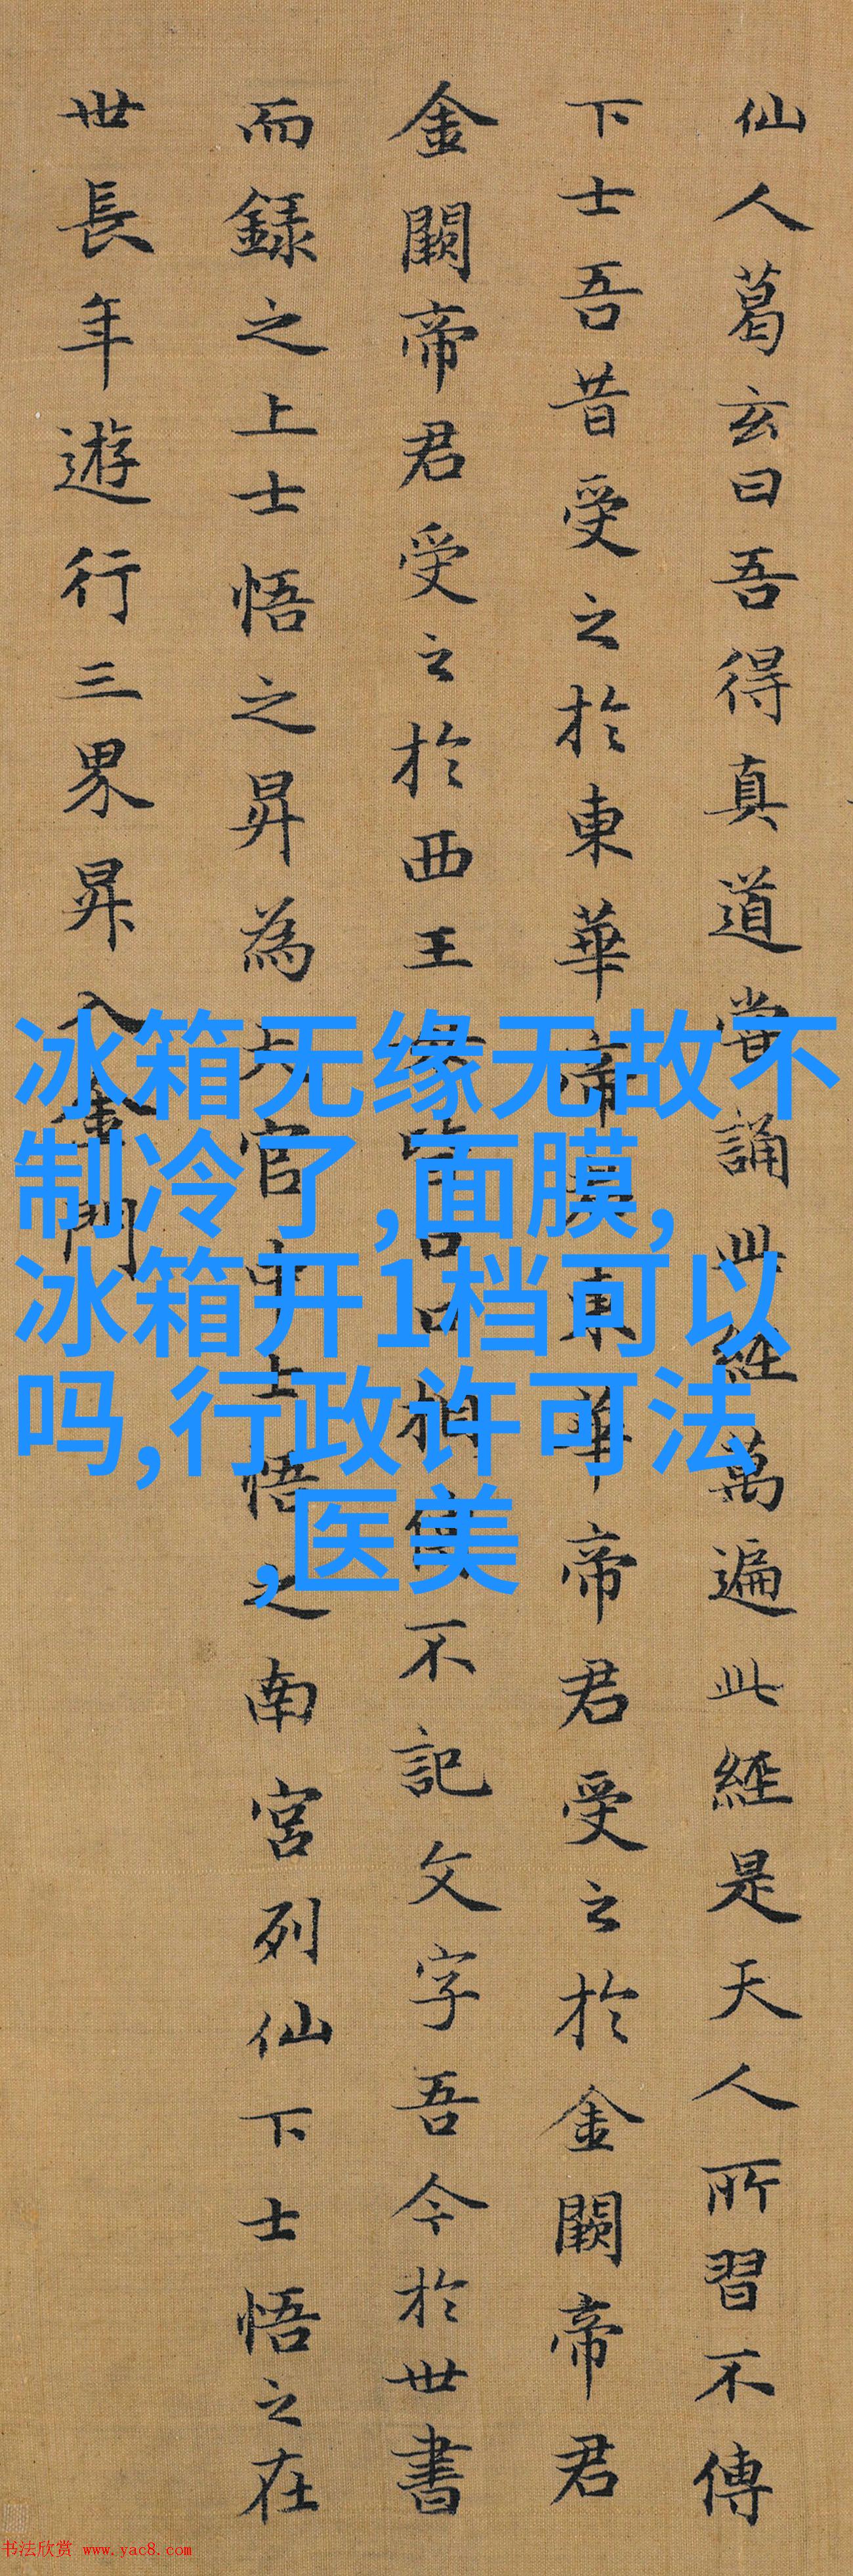 仙人葛玄曰吾得真道當誦此經萬遍此經是天人所習不傳
下士吾昔受之於東華帝君東華帝君受之於金闕帝君
金闕帝君受之於西王母皆口口相傳不記文字吾今於世書
而録之上士悟之昇為天官中士悟之南宮列仙下士悟之在
世長年遊行三界昇入金門
冰箱无缘无故不
制冷了,面膜,
冰箱开1档可以
吗,行政许可法
,医美
书法欣赏 www.yac8.com